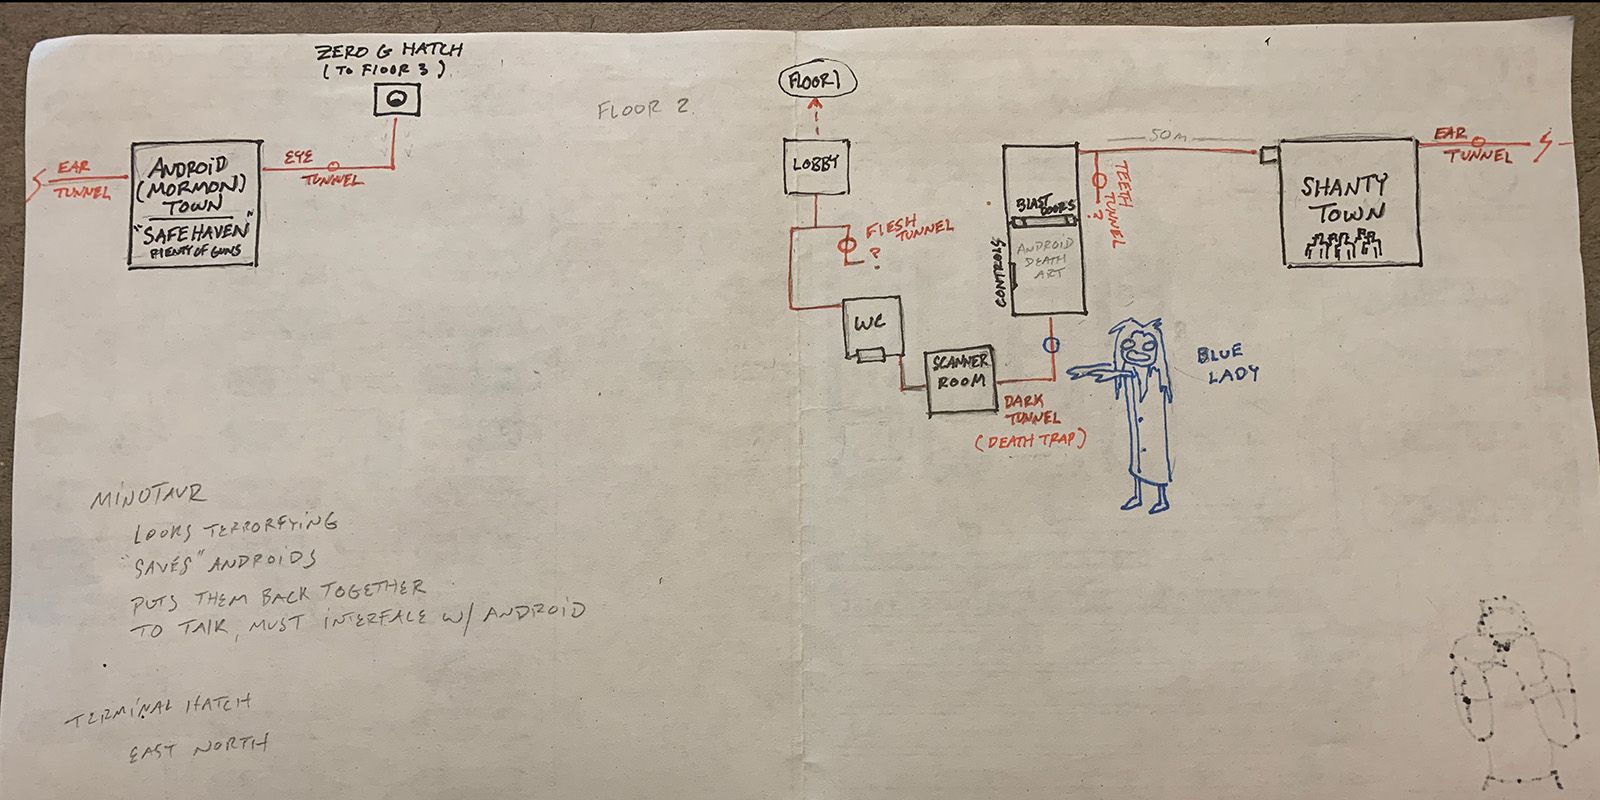 ZERO G HATCH
(TO FLOOR 3)
EAR
TUNNEL
ANDROID
(MORMON)
TOWN
"SAFE HAVEN"
PLENTY OF GUNS
EYE
TUNNEL
FLOOR 2
FLOOR 1
LOBBY
FLESH
TUNNEL
?
WC
SCANNER
ROOM
DARK
TUNNEL
(DEATH TRAP)
BLAST DOORS
CONTROLS
ANDROID
DEATH
ART
TEETH
TUNNEL
?
50m
SHANTY
TOWN
EAR
TUNNEL
BLUE
LADY
MINOTAUR
LOOKS TERRORFYING
"SAVES" ANDROIDS
PUTS THEM BACK TOGETHER
TO TALK, MUST INTERFACE W/ ANDROID
TERMINAL HATCH
EAST NORTH